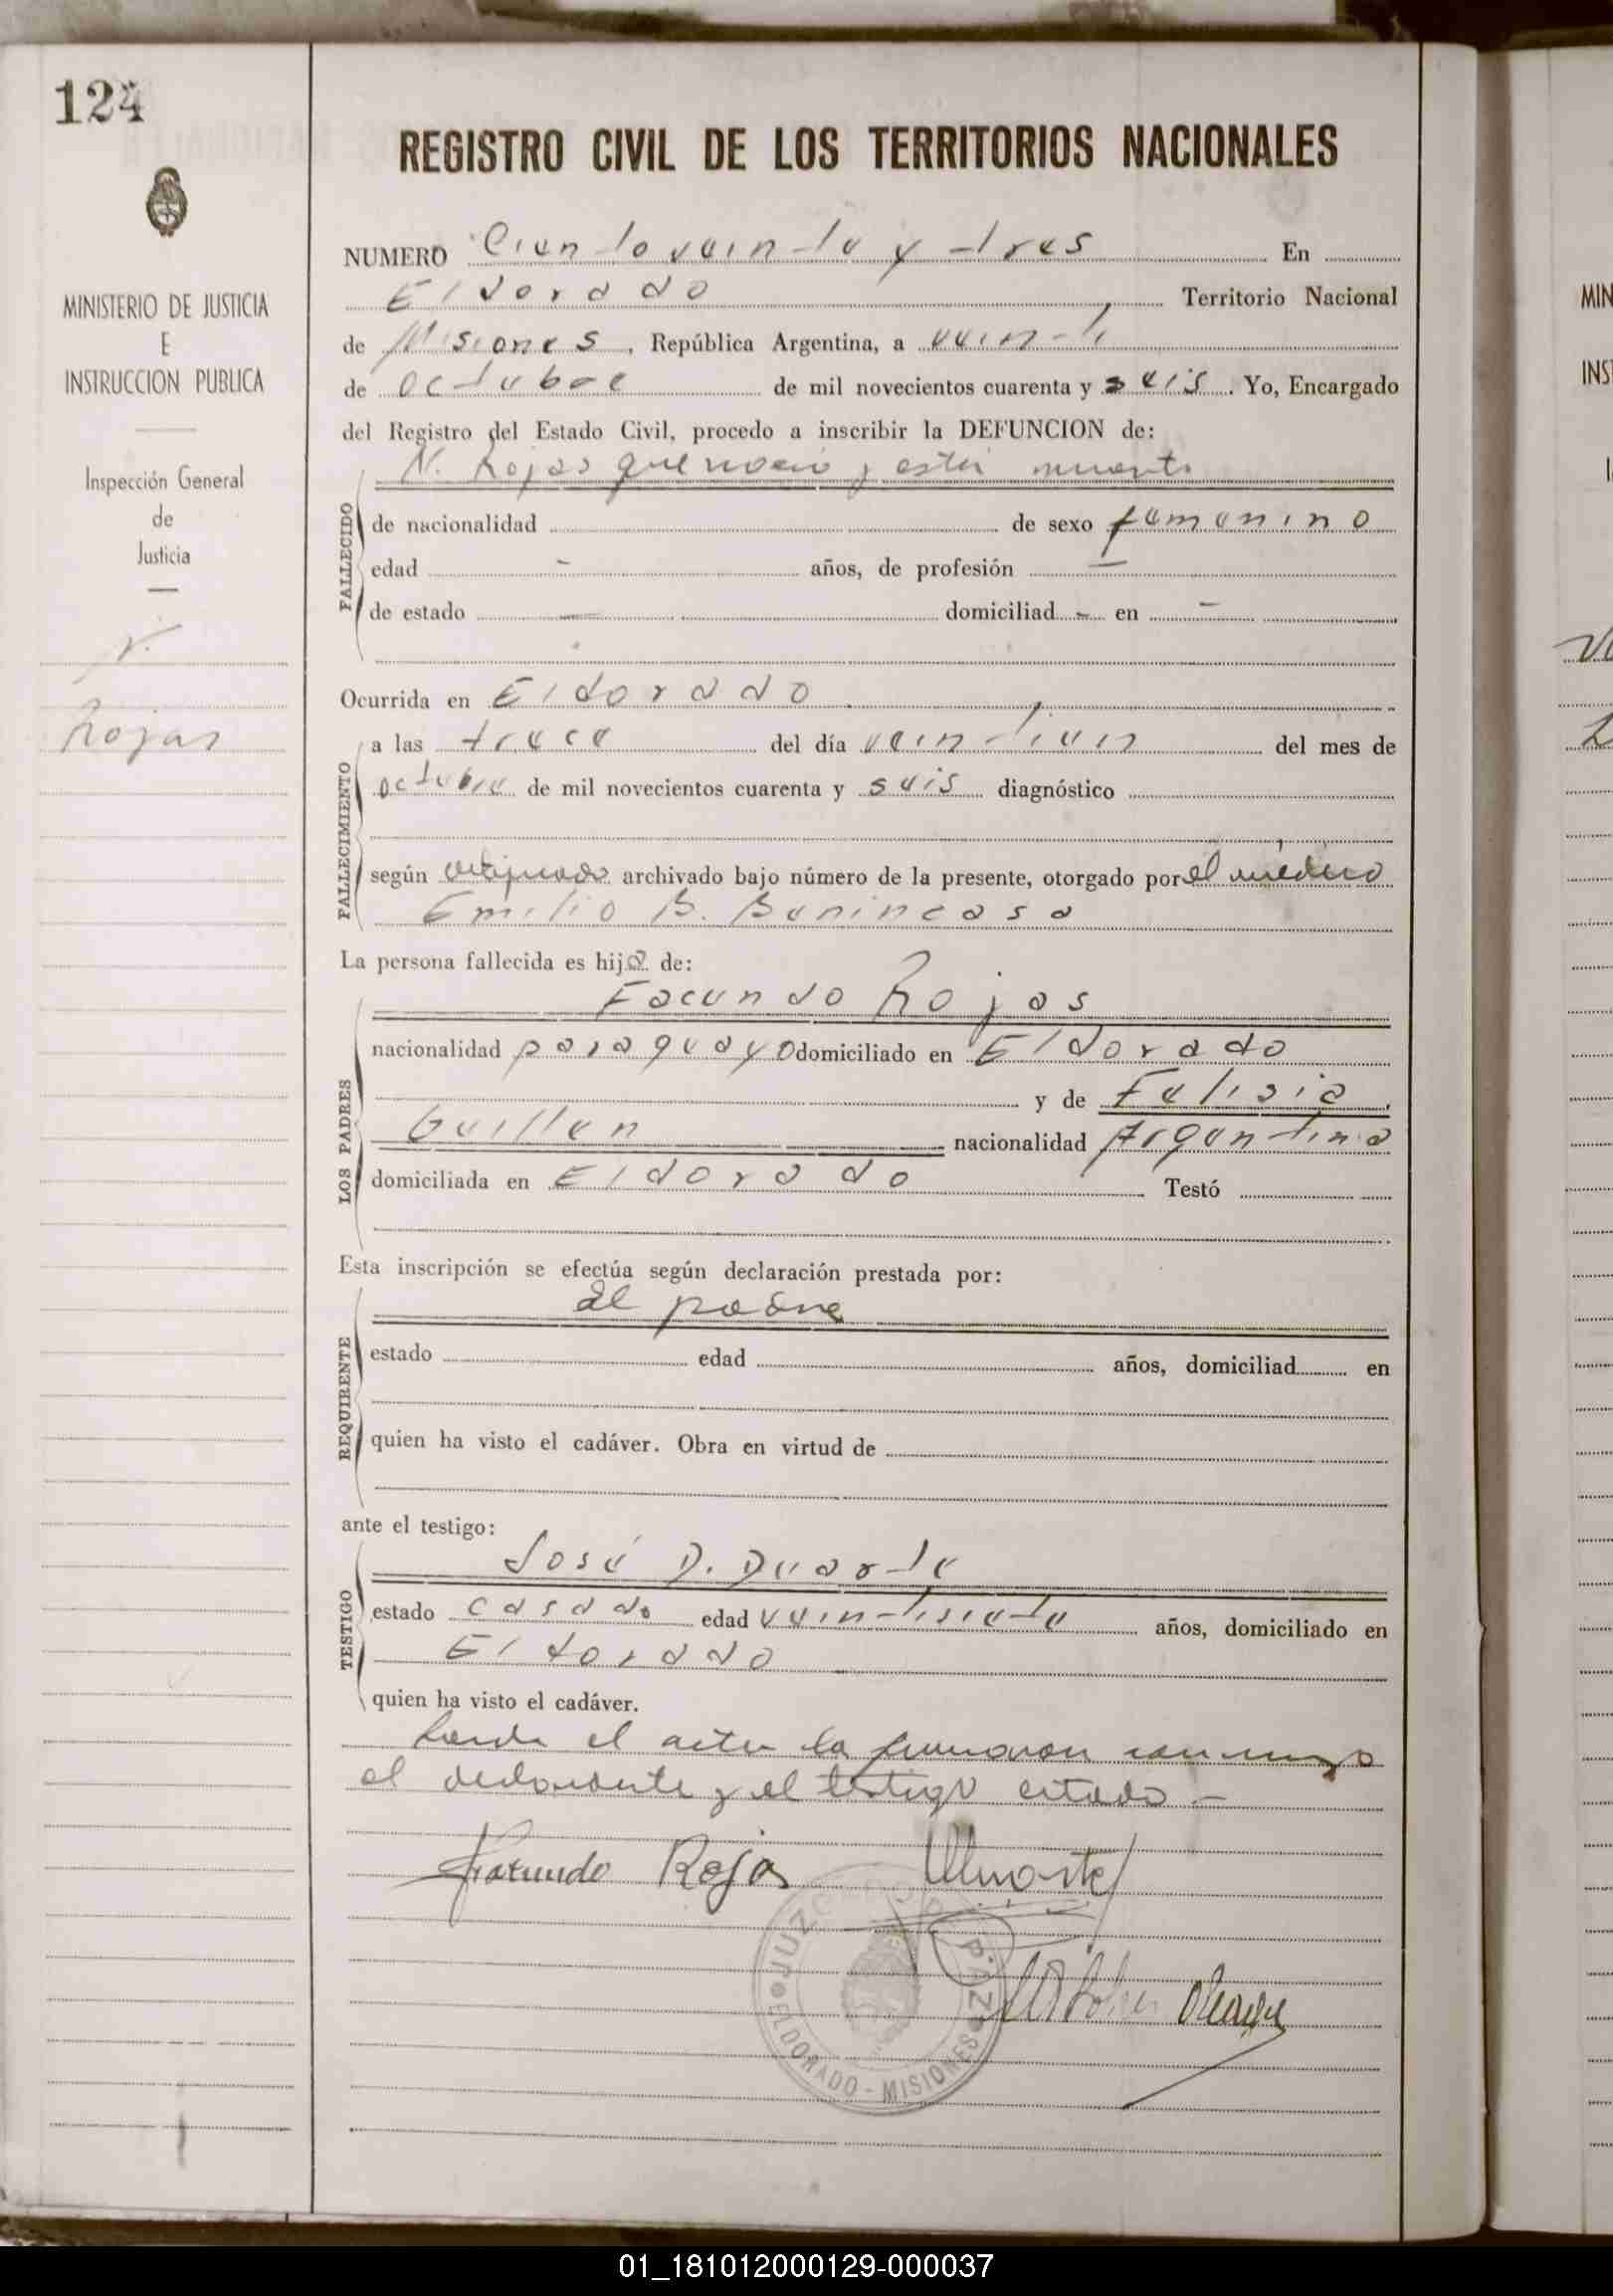 124
REGISTRO CIVIL DE LOS TERRITORIOS NACIONALES
MINISTERIO DE JUSTICIA
E
INSTRUCCION PUBLICA
Inspección General
de
Justicia
N.
Rojas
NUMERO Ciento veinte y tres En
Eldorado Territorio Nacional
de Misiones, República Argentina, a
de octubre de mil novecientos cuarenta y seis. Yo, Encargado
del Registro del Estado Civil, procedo a inscribir la DEFUNCION de:
N. Rojas que nació y está muerta
FALLECIDO
de nacionalidad de sexo femenino
edad - años, de profesión -
de estado - domiciliad - en -
Ocurrida en Eldorado
FALLECIMIENTO
a las trece del día del mes de
octubre de mil novecientos cuarenta y seis diagnóstico
según certificado archivado bajo número de la presente, otorgado por el médico
Emilio B. Benincasa
La persona fallecida es hija de:
LOS PADRES
Facundo Rojas
nacionalidad paraguayo domiciliado en Eldorado
y de Felisia
Guillen nacionalidad Argentina
domiciliada en Eldorado Testó
Esta inscripción se efectúa según declaración prestada por:
REQUIRENTE
El padre
estado edad años, domiciliad en
quien ha visto el cadáver. Obra en virtud de
ante el testigo:
TESTIGO
José D. Duarte
estado casado edad veintisiete años, domiciliado en
Eldorado
quien ha visto el cadáver.
el acta la firmaron conmigo
el declarante y el testigo citado -
Facundo Rojas Duarte
JUZ PAZ
ELDORADO - MISIONES
01_181012000129-000037